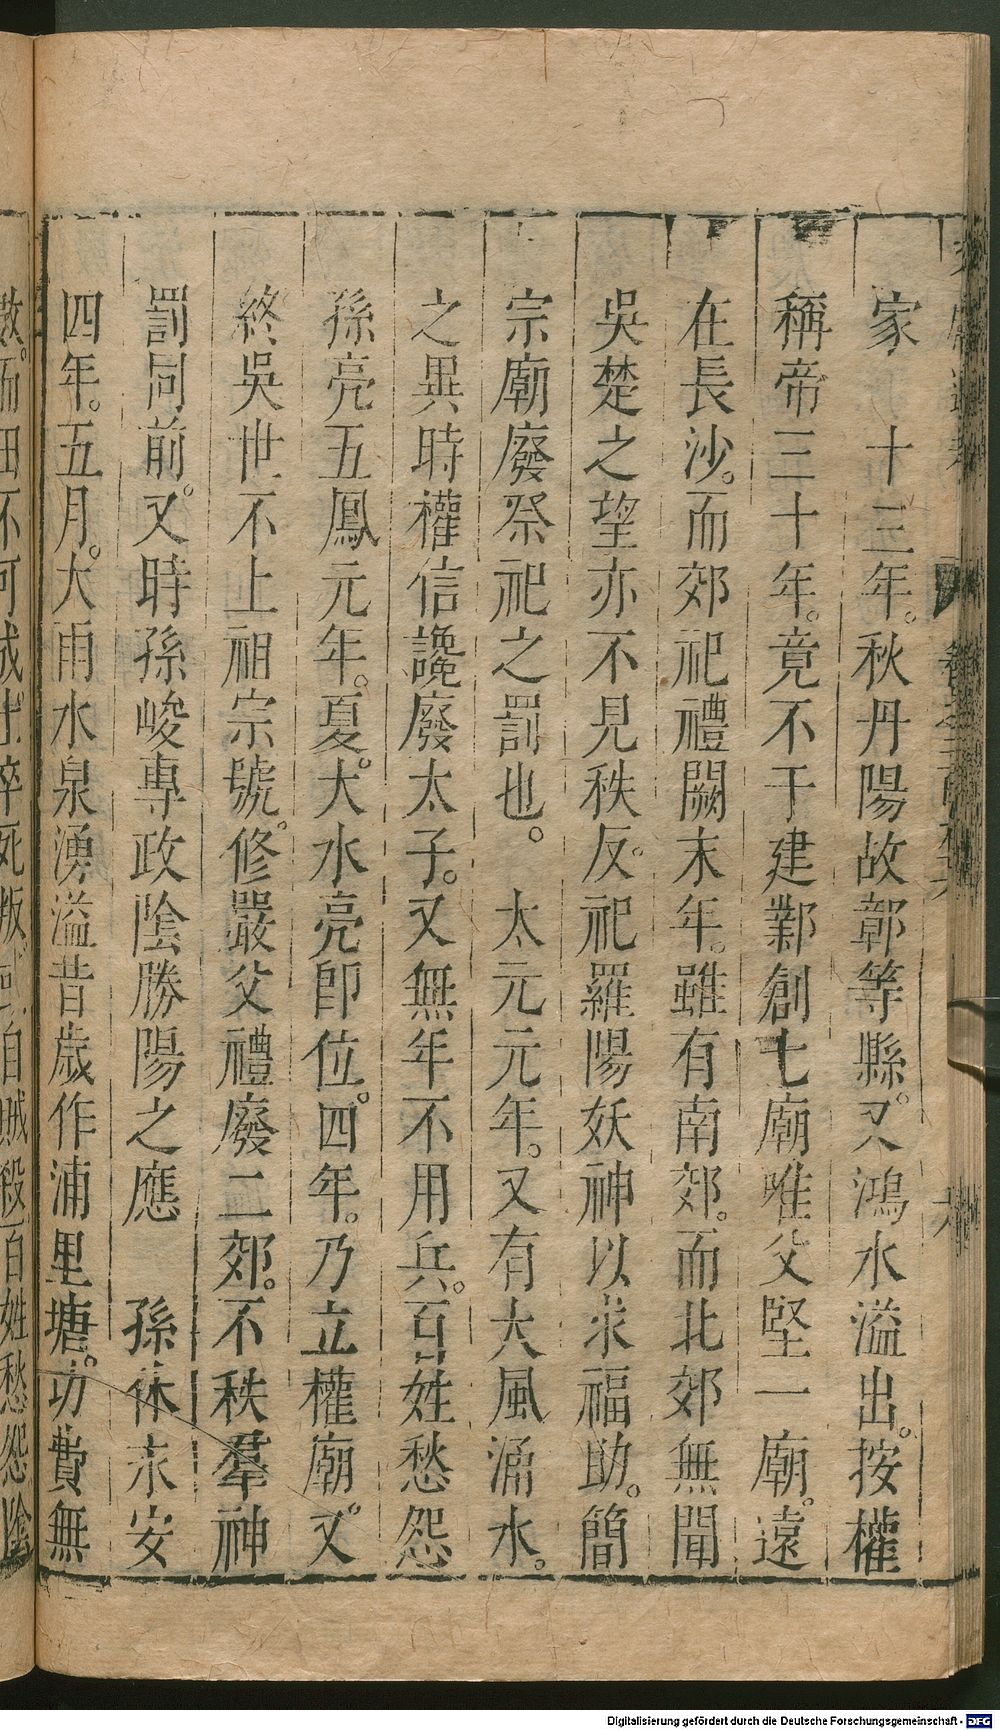 家　十三年。秋丹陽故鄣等縣。又鴻水溢出。按權
稱帝三十年。竟不于建鄴創七廟唯父堅一廟。遠
在長沙。而郊祀禮闕末年。雖有南郊。而北郊無聞
吳楚之望亦不見秩反。祀羅陽妖神以求福助。簡
宗廟廢祭祀之罰也。　太元元年。又有大風涌水。
之異時權信讒廢太子。又無年不用兵。百姓愁怨
孫亮五鳳元年。夏。大水亮即位。四年。乃立權廟。又
終吳世不上祖宗號。修嚴父禮廢二郊。不秩羣神
罰同前。又時孫峻專政陰勝陽之應　孫休永安
四年。五月。大雨水泉湧溢昔歲作浦里塘。功費無
數。而田不可成士卒死叛。或自賊殺百姓愁怨陰
Digitalisierung gefördert durch die Deutsche Forschungsgemeinschaft - DFG